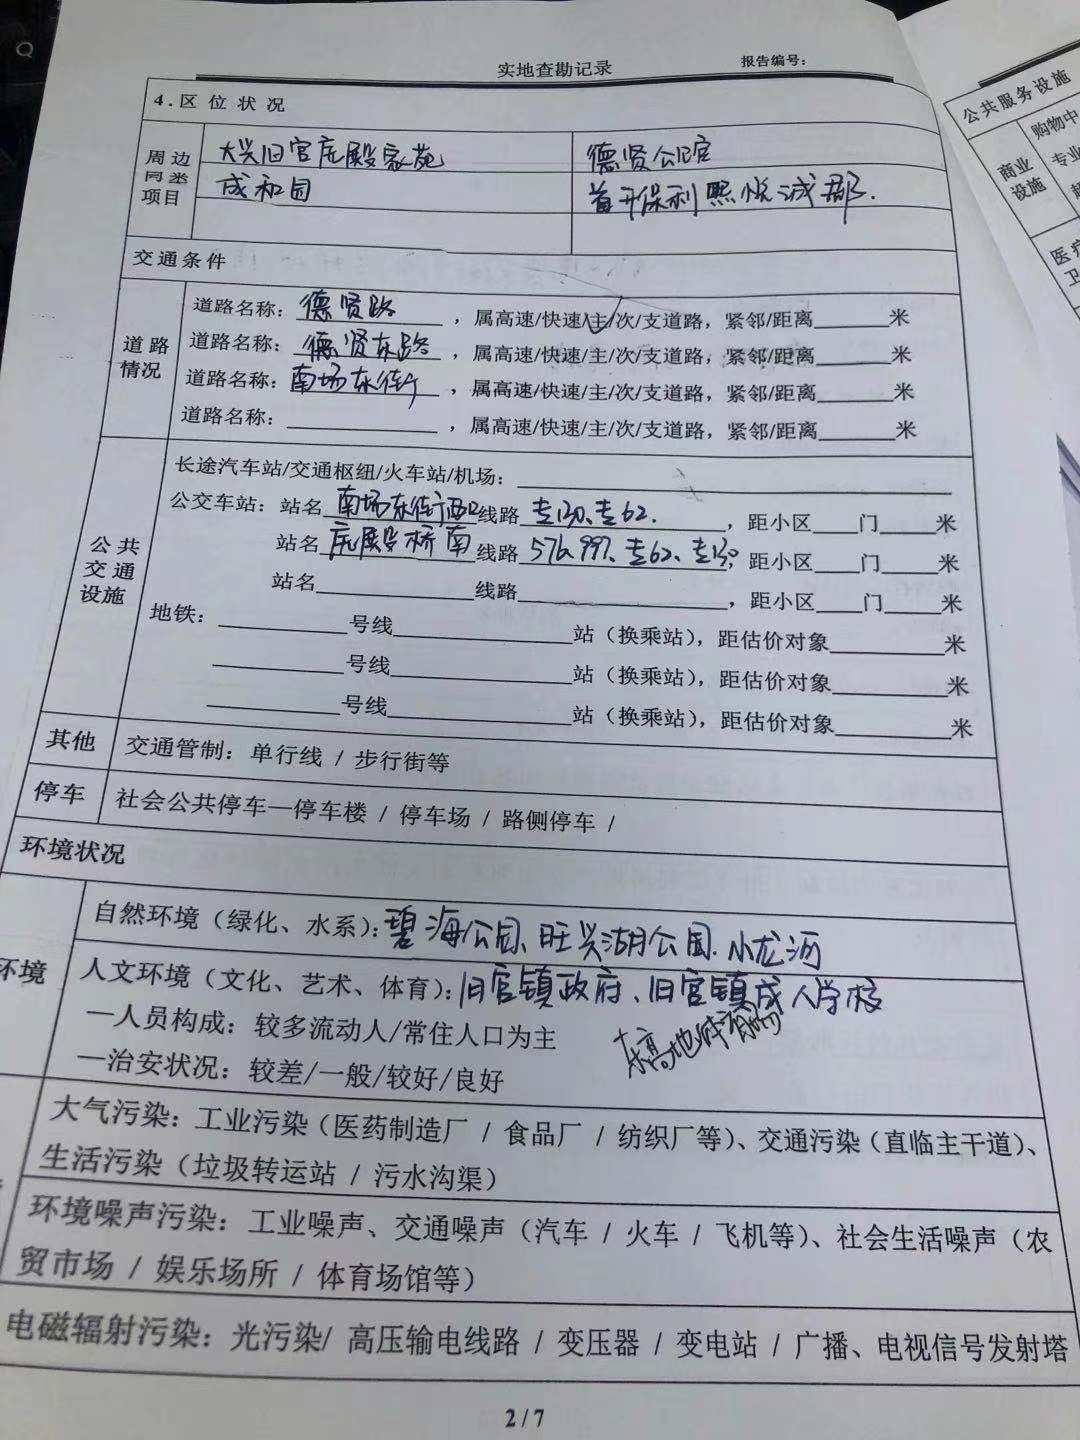 实地查勘记录 报告编号：
4.区位状况
周边同类项目
大兴旧宫庑殿家苑 德贤公馆
成和园 首开保利熙悦诚郡.
交通条件
道路情况
道路名称：德贤路，属高速/快速/主/次/支道路，紧邻/距离______米
道路名称：德贤东路，属高速/快速/主/次/支道路，紧邻/距离______米
道路名称：南场东街，属高速/快速/主/次/支道路，紧邻/距离______米
道路名称：______，属高速/快速/主/次/支道路，紧邻/距离______米
公共交通设施
长途汽车站/交通枢纽/火车站/机场：______
公交车站：站名南场东街西口线路专130、专62.，距小区____门____米
站名庑殿桥南线路576、997、专62、专130，距小区____门____米
站名______线路______，距小区____门____米
地铁：______号线______站（换乘站），距估价对象______米
______号线______站（换乘站），距估价对象______米
______号线______站（换乘站），距估价对象______米
其他 交通管制：单行线 / 步行街等
停车 社会公共停车—停车楼 / 停车场 / 路侧停车 /
环境状况
自然环境（绿化、水系）：碧海公园、旺兴湖公园.小龙河
环境 人文环境（文化、艺术、体育）：旧宫镇政府、旧宫镇成人学校
—人员构成：较多流动人/常住人口为主 东高地体育场
—治安状况：较差/一般/较好/良好
大气污染：工业污染（医药制造厂 / 食品厂 / 纺织厂等）、交通污染（直临主干道）、
生活污染（垃圾转运站 / 污水沟渠）
环境噪声污染：工业噪声、交通噪声（汽车 / 火车 / 飞机等）、社会生活噪声（农
贸市场 / 娱乐场所 / 体育场馆等）
电磁辐射污染：光污染/ 高压输电线路 / 变压器 / 变电站 / 广播、电视信号发射塔
2/7
公共服务设施
商业设施
购物中
专业
医疗
卫